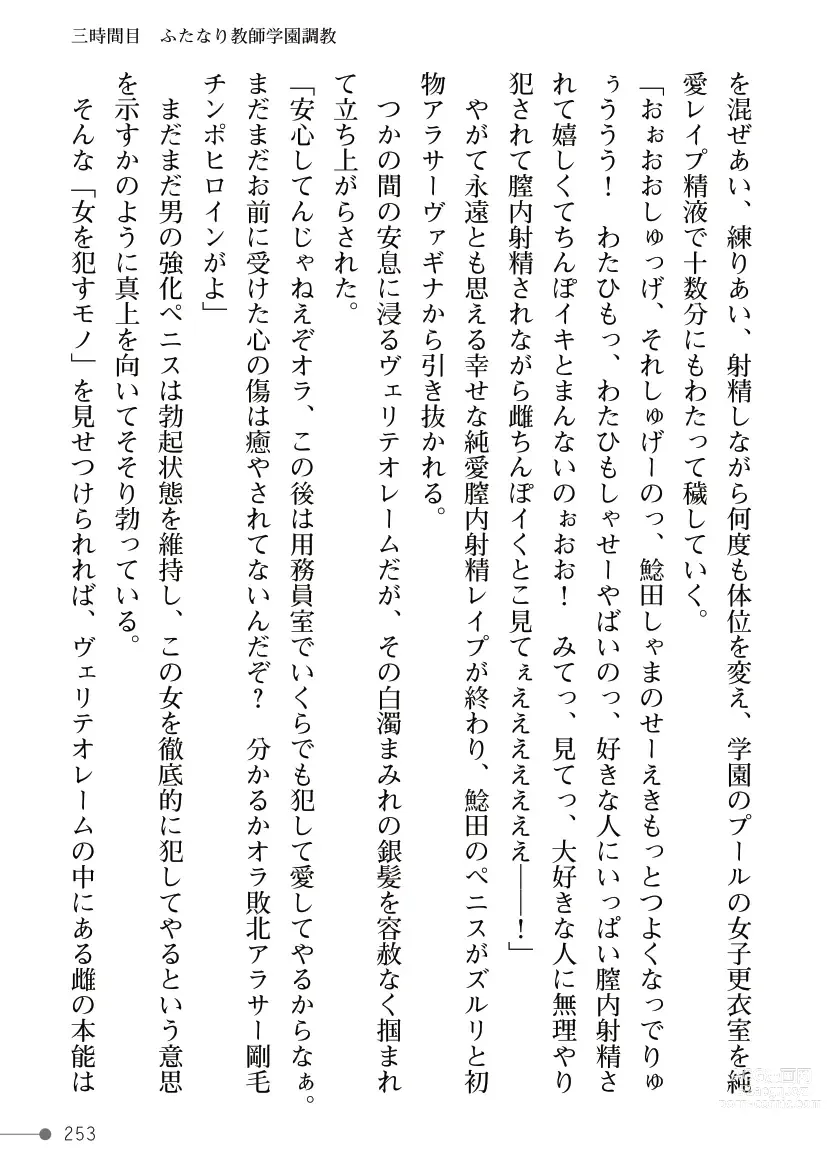 三時間目　ふたなり教師学園調教
を混ぜあい、練りあい、射精しながら何度も体位を変え、学園のプールの女子更衣室を純
愛レイプ精液で十数分にもわたって穢していく。
「おぉおおしゅっげ、それしゅげーのっ、鯰田しゃまのせーえきもっとつよくなっでりゅ
ぅううう！　わたひもっ、わたひもしゃせーやばいのっ、好きな人にいっぱい膣内射精さ
れて嬉しくてちんぽイキとまんないのぉおお！　みてっ、見てっ、大好きな人に無理やり
犯されて膣内射精されながら雌ちんぽイくとこ見てぇえええええええ――！」
　やがて永遠とも思える幸せな純愛膣内射精レイプが終わり、鯰田のペニスがズルリと初
物アラサーヴァギナから引き抜かれる。
　つかの間の安息に浸るヴェリテオレームだが、その白濁まみれの銀髪を容赦なく掴まれ
て立ち上がらされた。
「安心してんじゃねえぞオラ、この後は用務員室でいくらでも犯して愛してやるからなぁ。
まだまだお前に受けた心の傷は癒やされてないんだぞ？　分かるかオラ敗北アラサー剛毛
チンポヒロインがよ」
　まだまだ男の強化ペニスは勃起状態を維持し、この女を徹底的に犯してやるという意思
を示すかのように真上を向いてそそり勃っている。
　そんな「女を犯すモノ」を見せつけられれば、ヴェリテオレームの中にある雌の本能は
253